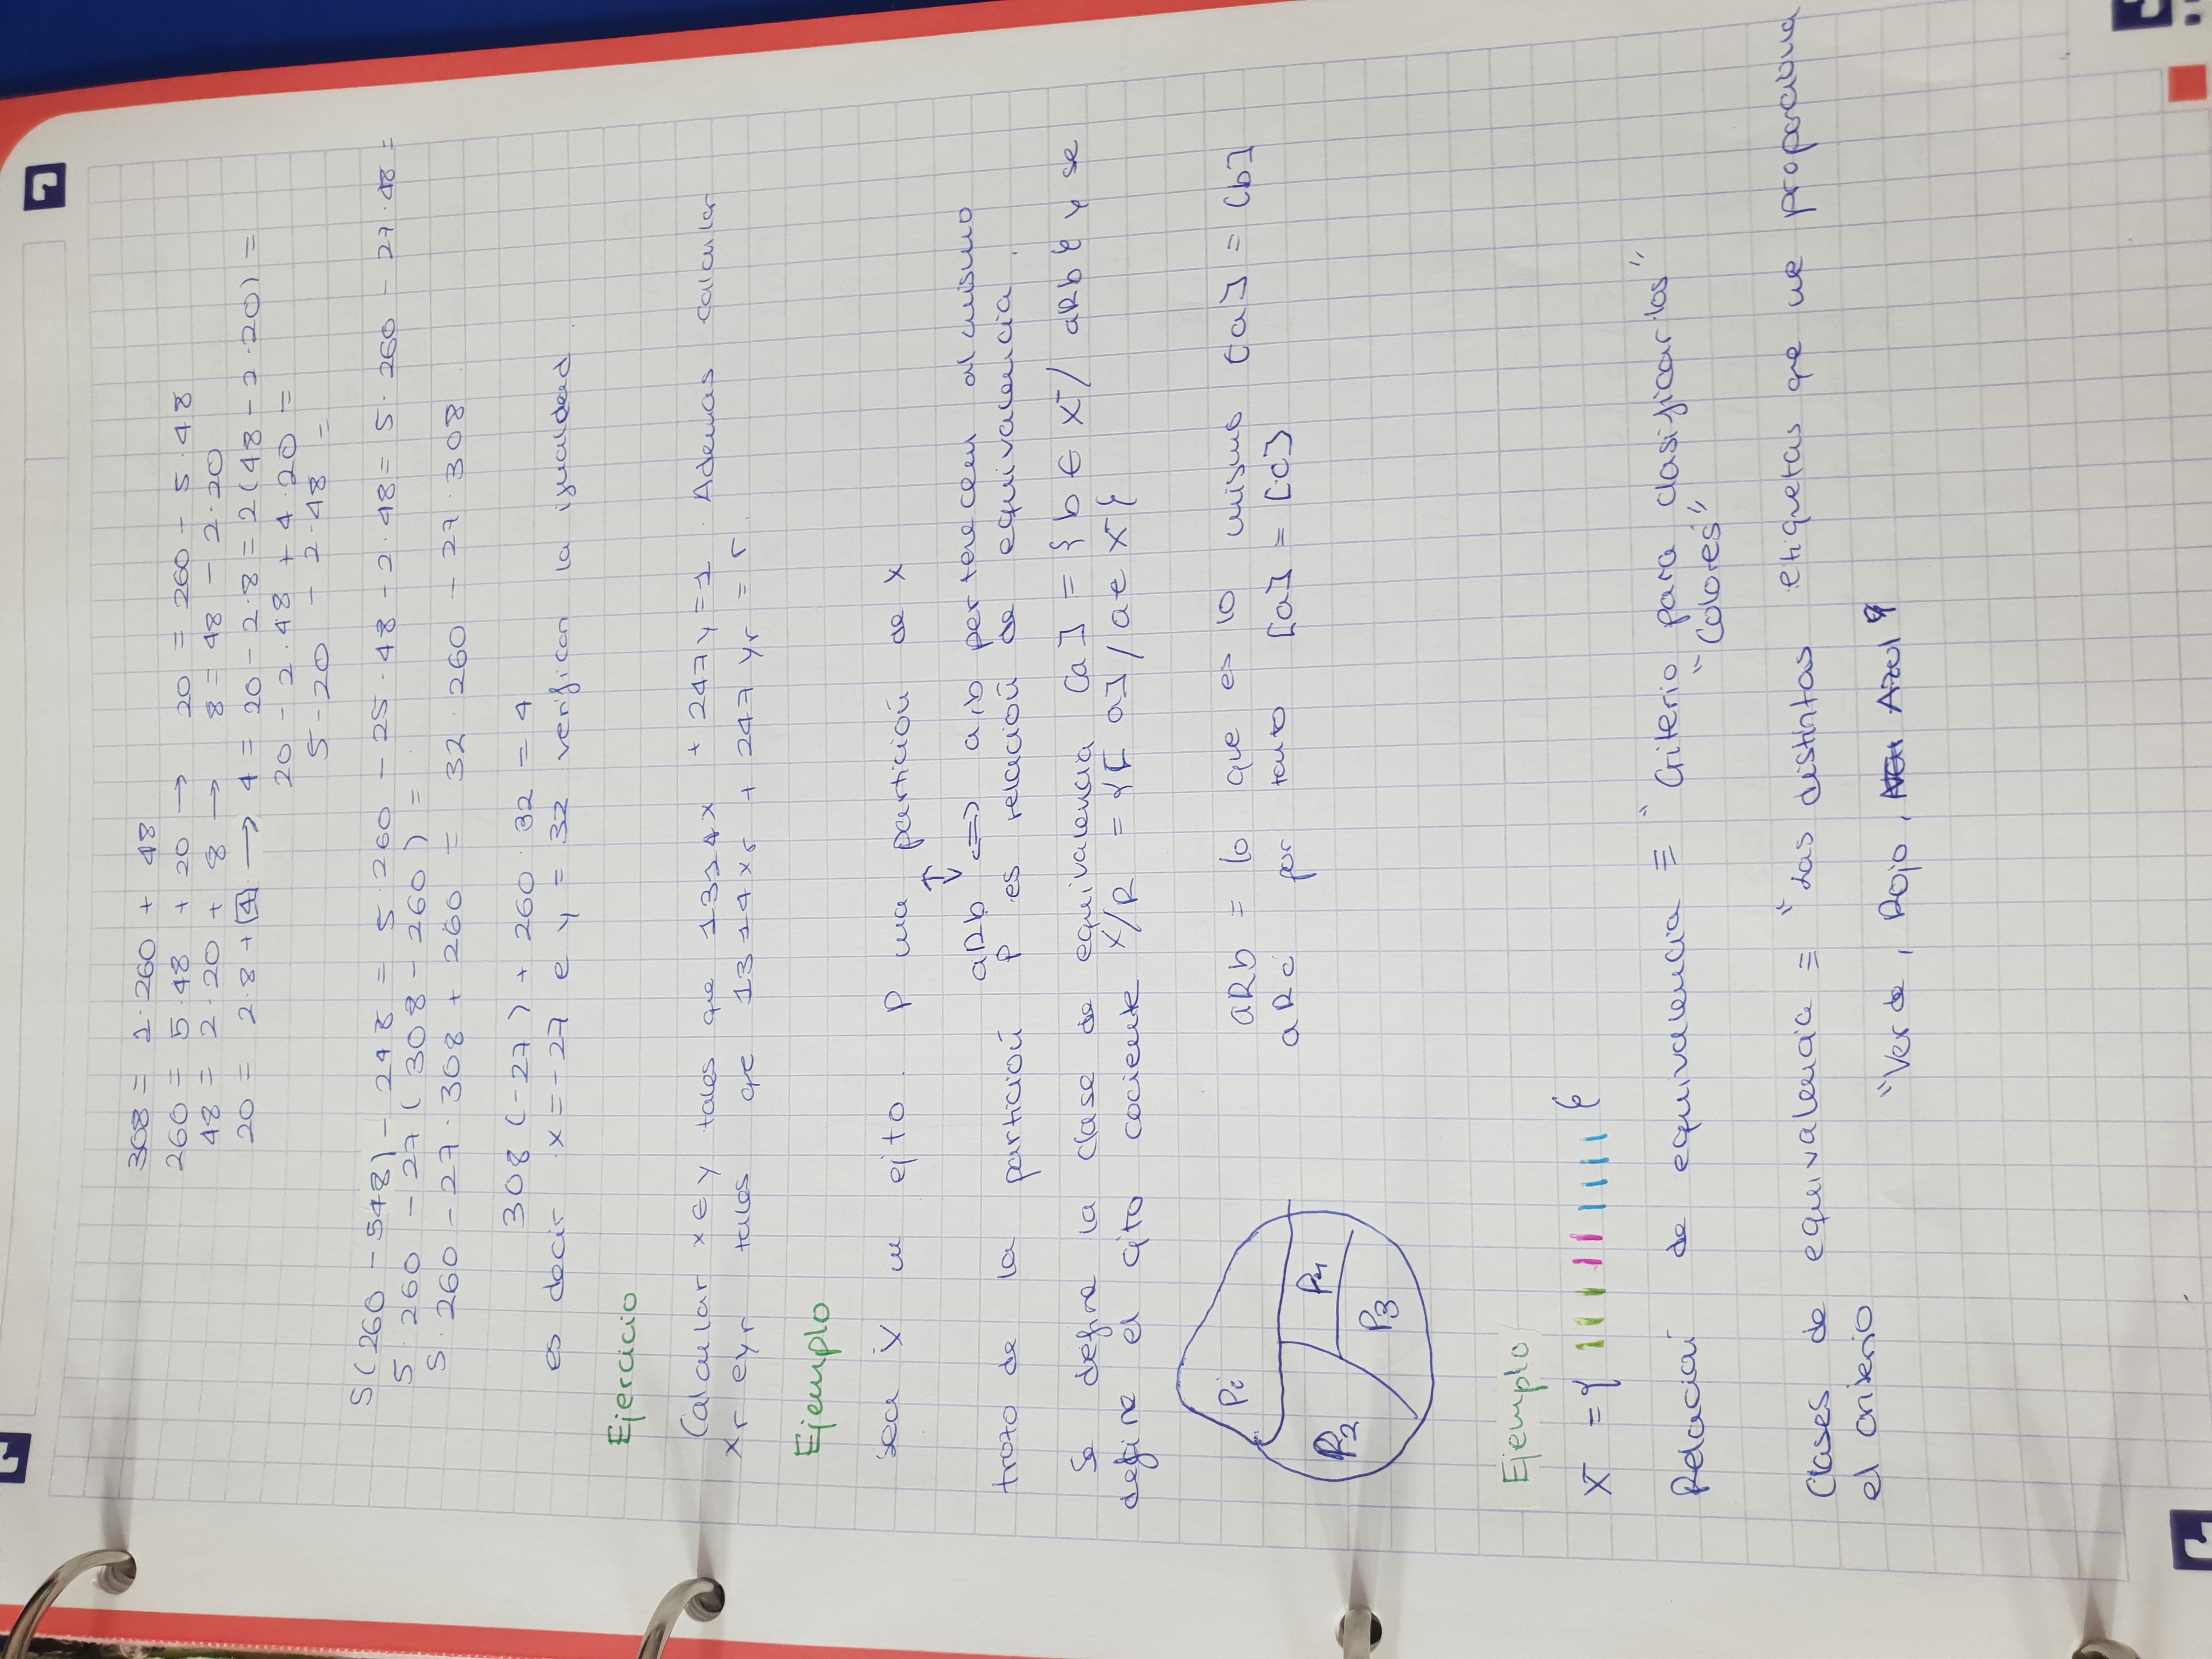 308 = 1·260 + 48
260 = 5·48 + 20 → 20 = 260 - 5·48
48 = 2·20 + 8 → 8 = 48 - 2·20
20 = 2·8 + 4 → 4 = 20 - 2·8 = 2(48 - 2·20) =
20 - 2·48 + 4·20 =
5-20 - 2·48 =
5(260 - 548) - 248 = 5·260 - 25·48 - 2·48 = 5·260 - 27·48 =
5·260 - 27(308 - 260) =
5·260 - 27·308 + 260 = 32·260 - 27·308
308(-27) + 260·32 = 4
es decir x = -27 e y = 32 verifican la igualdad.
Ejercicio
Calcular x e y tales que 1314x + 247y = 1. Ademas calcular
xr e yr tales que 1314xr + 247yr = r.
Ejemplo
Sea X un cjto. P una partición de X
aRb ⟺ a,b pertenecen al mismo
trozo de la partición P es relación de equivalencia.
Se define la clase de equivalencia [a] = { b ∈ X / aRb } y se
define el cjto cociente X/R = {[a] / a ∈ X}
aRb = lo que es lo mismo [a] = [b]
aRc por tanto [a] = [c]
P1
P2
P4
P3
Ejemplo
X = { }
Relación de equivalencia ≡ "Criterio para clasificarlos"
"Colores"
Clases de equivalencia ≡ "Las distintas etiquetas que me proporciona
el criterio
"Verde, Rojo, Azul"